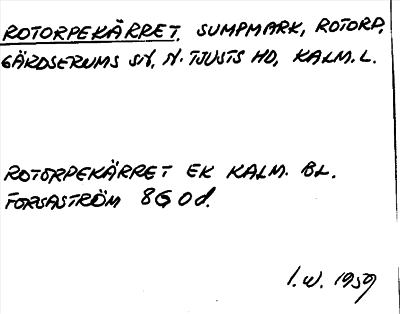 ROTORPEKÄRRET, SUMPMARK, ROTORP,
GÄRDSERUMS SN, N. TJUSTS HD, KALM. L.
ROTORPEKÄRRET EK KALM. BL.
FORSASTRÖM 8G 0d.
I. W. 1959